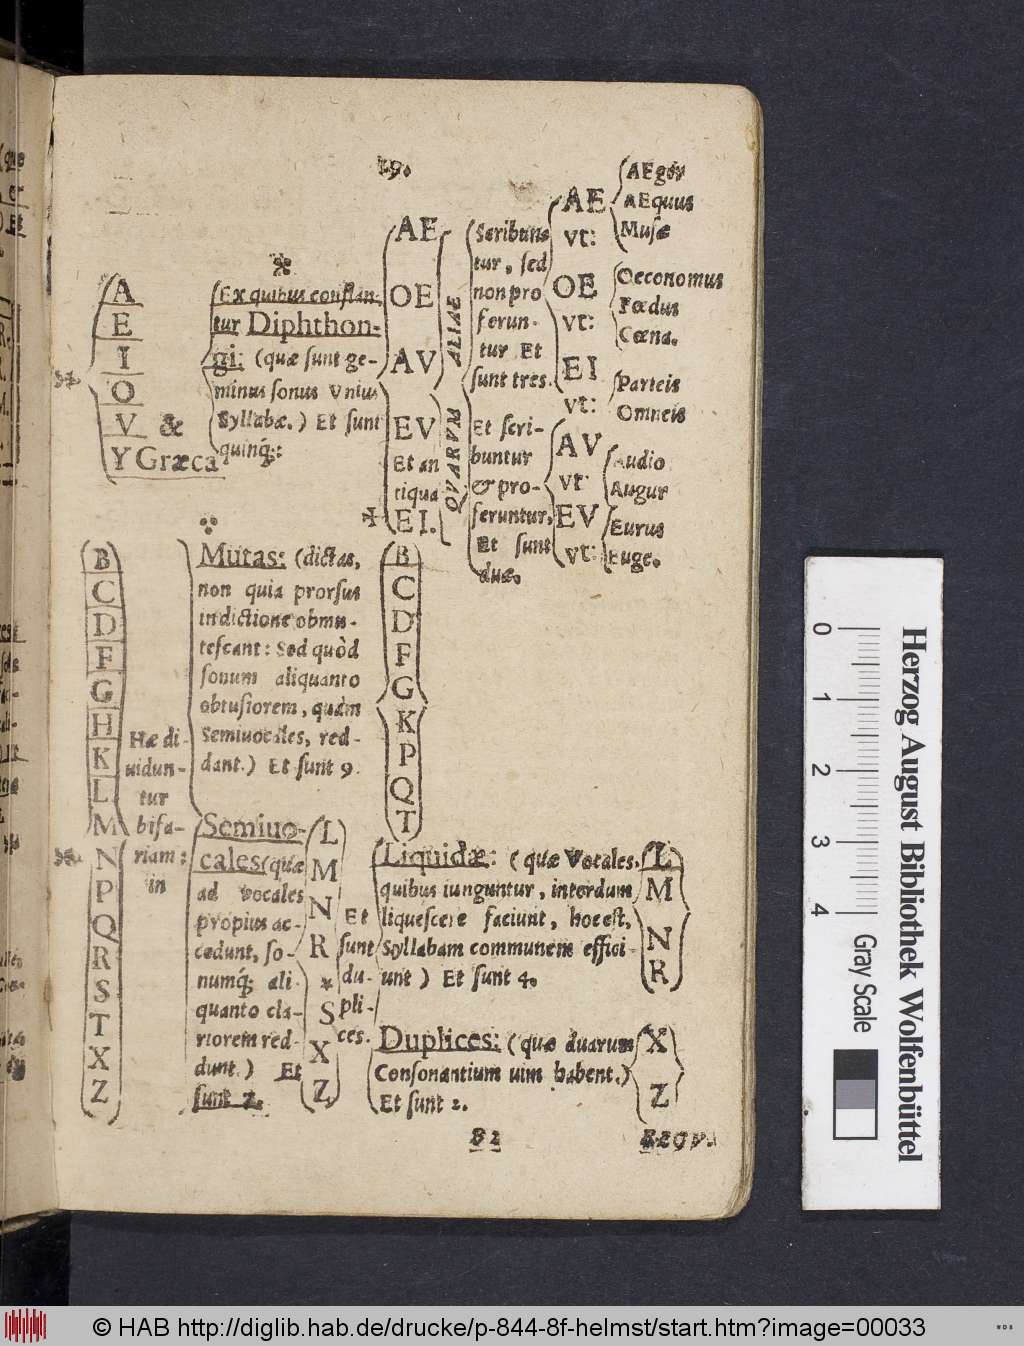 19.
A
E
I
O
V &
Y Græca
Ex quibus conflan-
tur Diphthon-
gi: (quæ sunt ge-
minus sonus vnius
Syllabæ.) Et sunt
quinq́;:
AE
OE
AV
EV
Et an
tiqua
EI.
QVARVM ALIAE
Scribun-
tur, sed
non pro
ferun-
tur Et
sunt tres.
AE
vt:
AEger
AEquus
Musæ
OE
vt:
Oeconomus
Fœdus
Cœna.
EI
vt:
Parteis
Omneis
Et scri-
buntur
& pro-
feruntur,
Et sunt
duæ.
AV
vt:
Audio
Augur
EV
vt:
Eurus
Euge.
B
C
D
F
G
H
K
L
M
N
P
Q
R
S
T
X
Z
Hæ di-
uidun-
tur
bifa-
riam:
in
Mutas: (dictas,
non quia prorsus
in dictione obmu-
tescant: Sed quòd
sonum aliquanto
obtusiorem, quàm
Semiuocales, red-
dant.) Et sunt 9.
B
C
D
F
G
K
P
Q
T
Semiuo-
cales (quæ
ad vocales
propius ac-
cedunt, so-
numq́; ali-
quanto cla-
riorem red-
dunt.) Et
sunt 7.
L
M
N
R
*
S
X
Z
Et
sunt
du-
pli-
ces.
Liquidæ: (quæ Vocales,
quibus iunguntur, interdum
liquescere faciunt, hoc est,
Syllabam communem effici-
unt) Et sunt 4.
L
M
N
R
Duplices: (quæ duarum
Consonantium uim habent.)
Et sunt 2.
X
Z
B 2
Herzog August Bibliothek Wolfenbüttel
0 1 2 3 4
Gray Scale
© HAB http://diglib.hab.de/drucke/p-844-8f-helmst/start.htm?image=00033